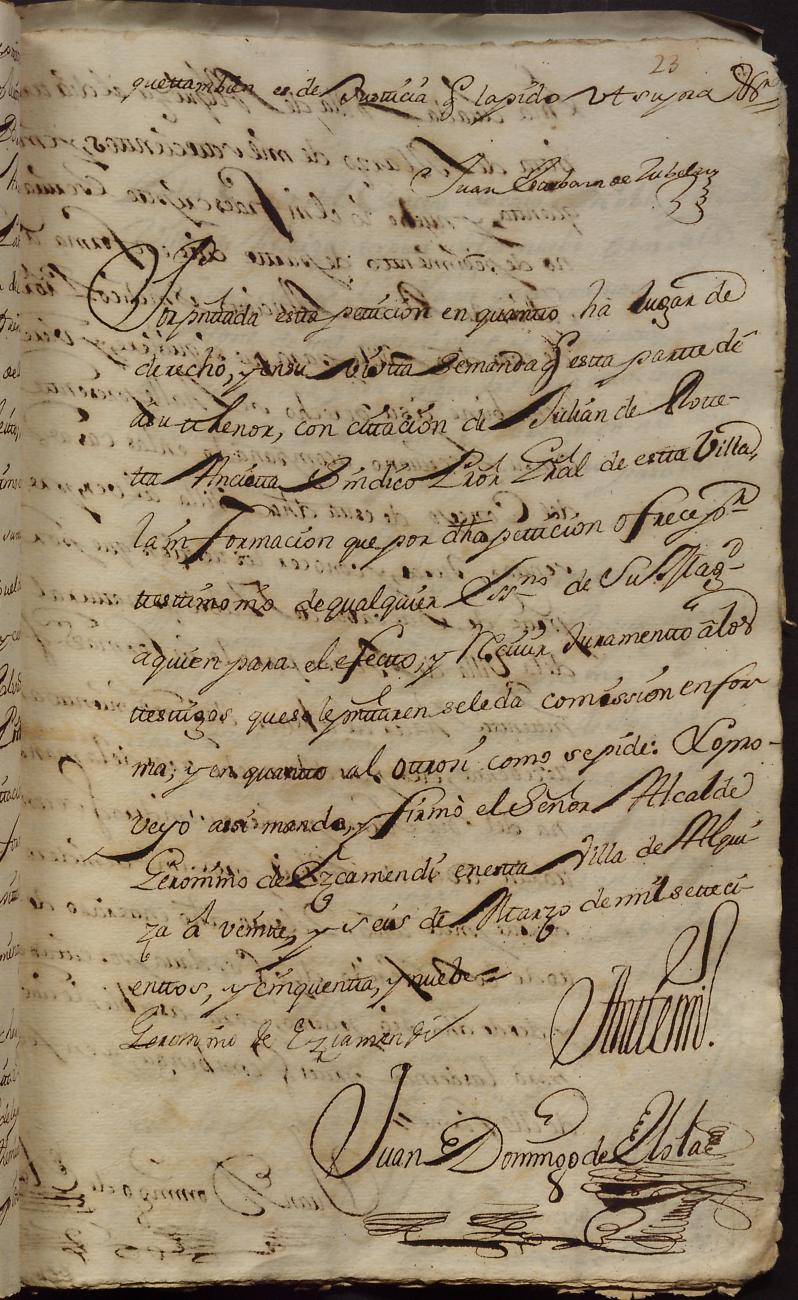 23
que tambien es de Justicia q̃ la pido vt supra
Juan Barbara de Zubelzu
Por pntada esta peticion en quanto ha lugar de
derecho, y en su vista demanda q̃ esta parte dè
a su thenor, con citacion de Julian de Roue-
ta Ancieta Sindico Pror Gral de esta Villa,
la informacion que por dha peticion ofrece pr
testimonio de qualquier Essno de Su Magd
a quien para el efecto, y reciuir Juramento à los
testigos, que se le pntaren se le dà comission en for-
ma; y en quanto al otrosi como se pide: Lo pro-
veyò assi mando, y firmò el Señor Alcalde
Geronimo de Ezcamendi en esta Villa de Alqui-
za à veinte, y seis de Marzo de mil seteci-
enttos, y cinquenta, y nuebe=
Geronimo de Ezcamendi
Antemi.
Juan Domingo de